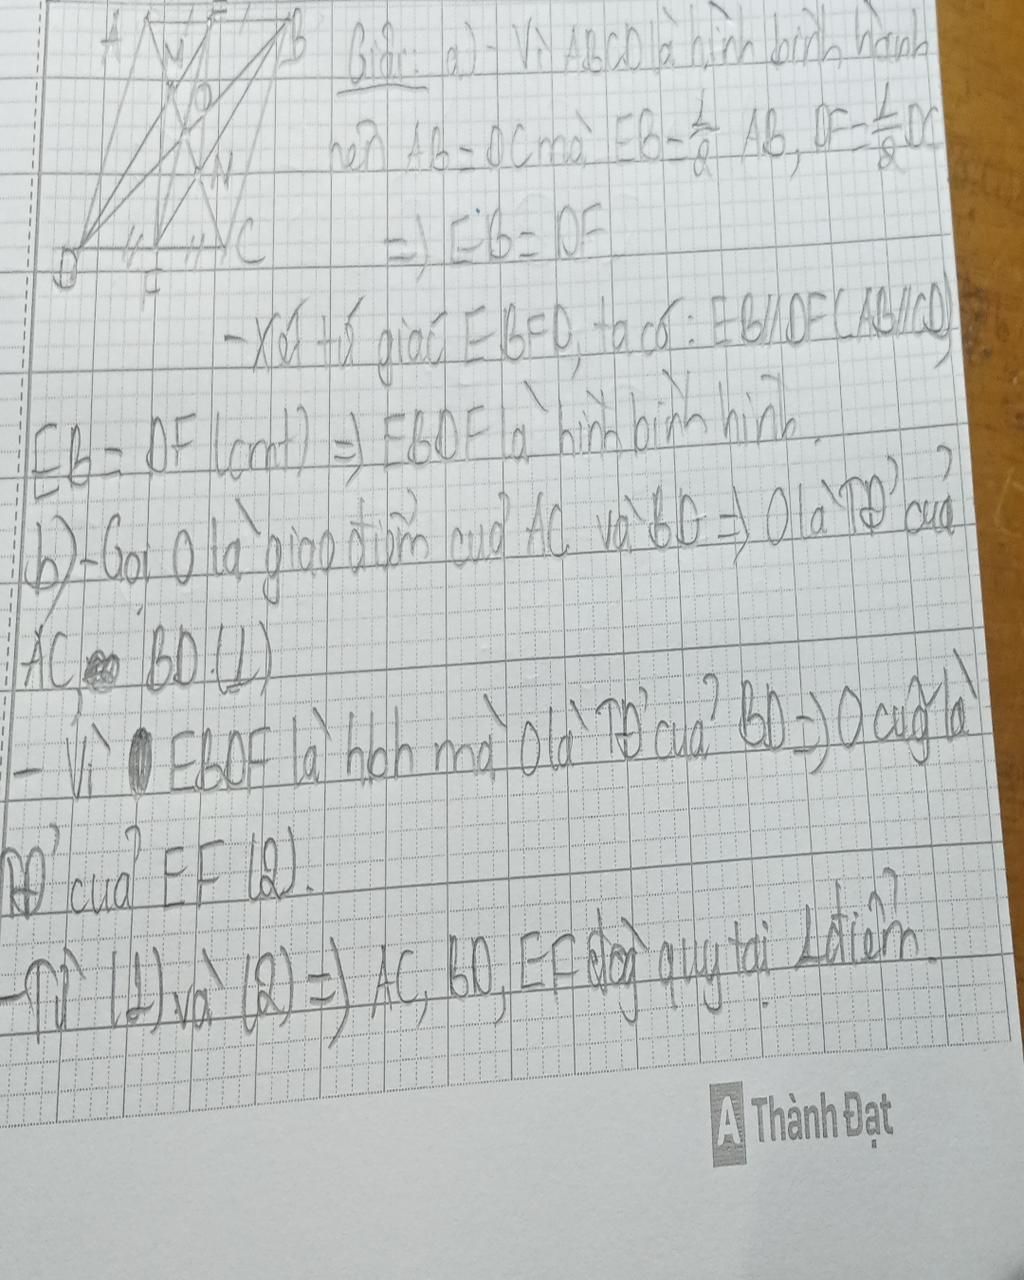 A E B
M
O
N
D F C
Giải: a) - Vì ABCD là hình bình hành
nên AB = DC mà EB = 1/2 AB, DF = 1/2 DC
=> EB = DF
- Xét tứ giác EBFD, ta có: EB // DF (AB // CD)
EB = DF (cmt) => EBDF là hình bình hình.
b) - Gọi O là giao điểm của AC và BD => O là TĐ của
AC BD (1)
- Vì EBDF là hbh mà O là TĐ của BD => O cũg là
TĐ của EF (2).
- Từ (1) và (2) => AC, BD, EF đồg quy tại 1 điểm.
A Thành Đạt